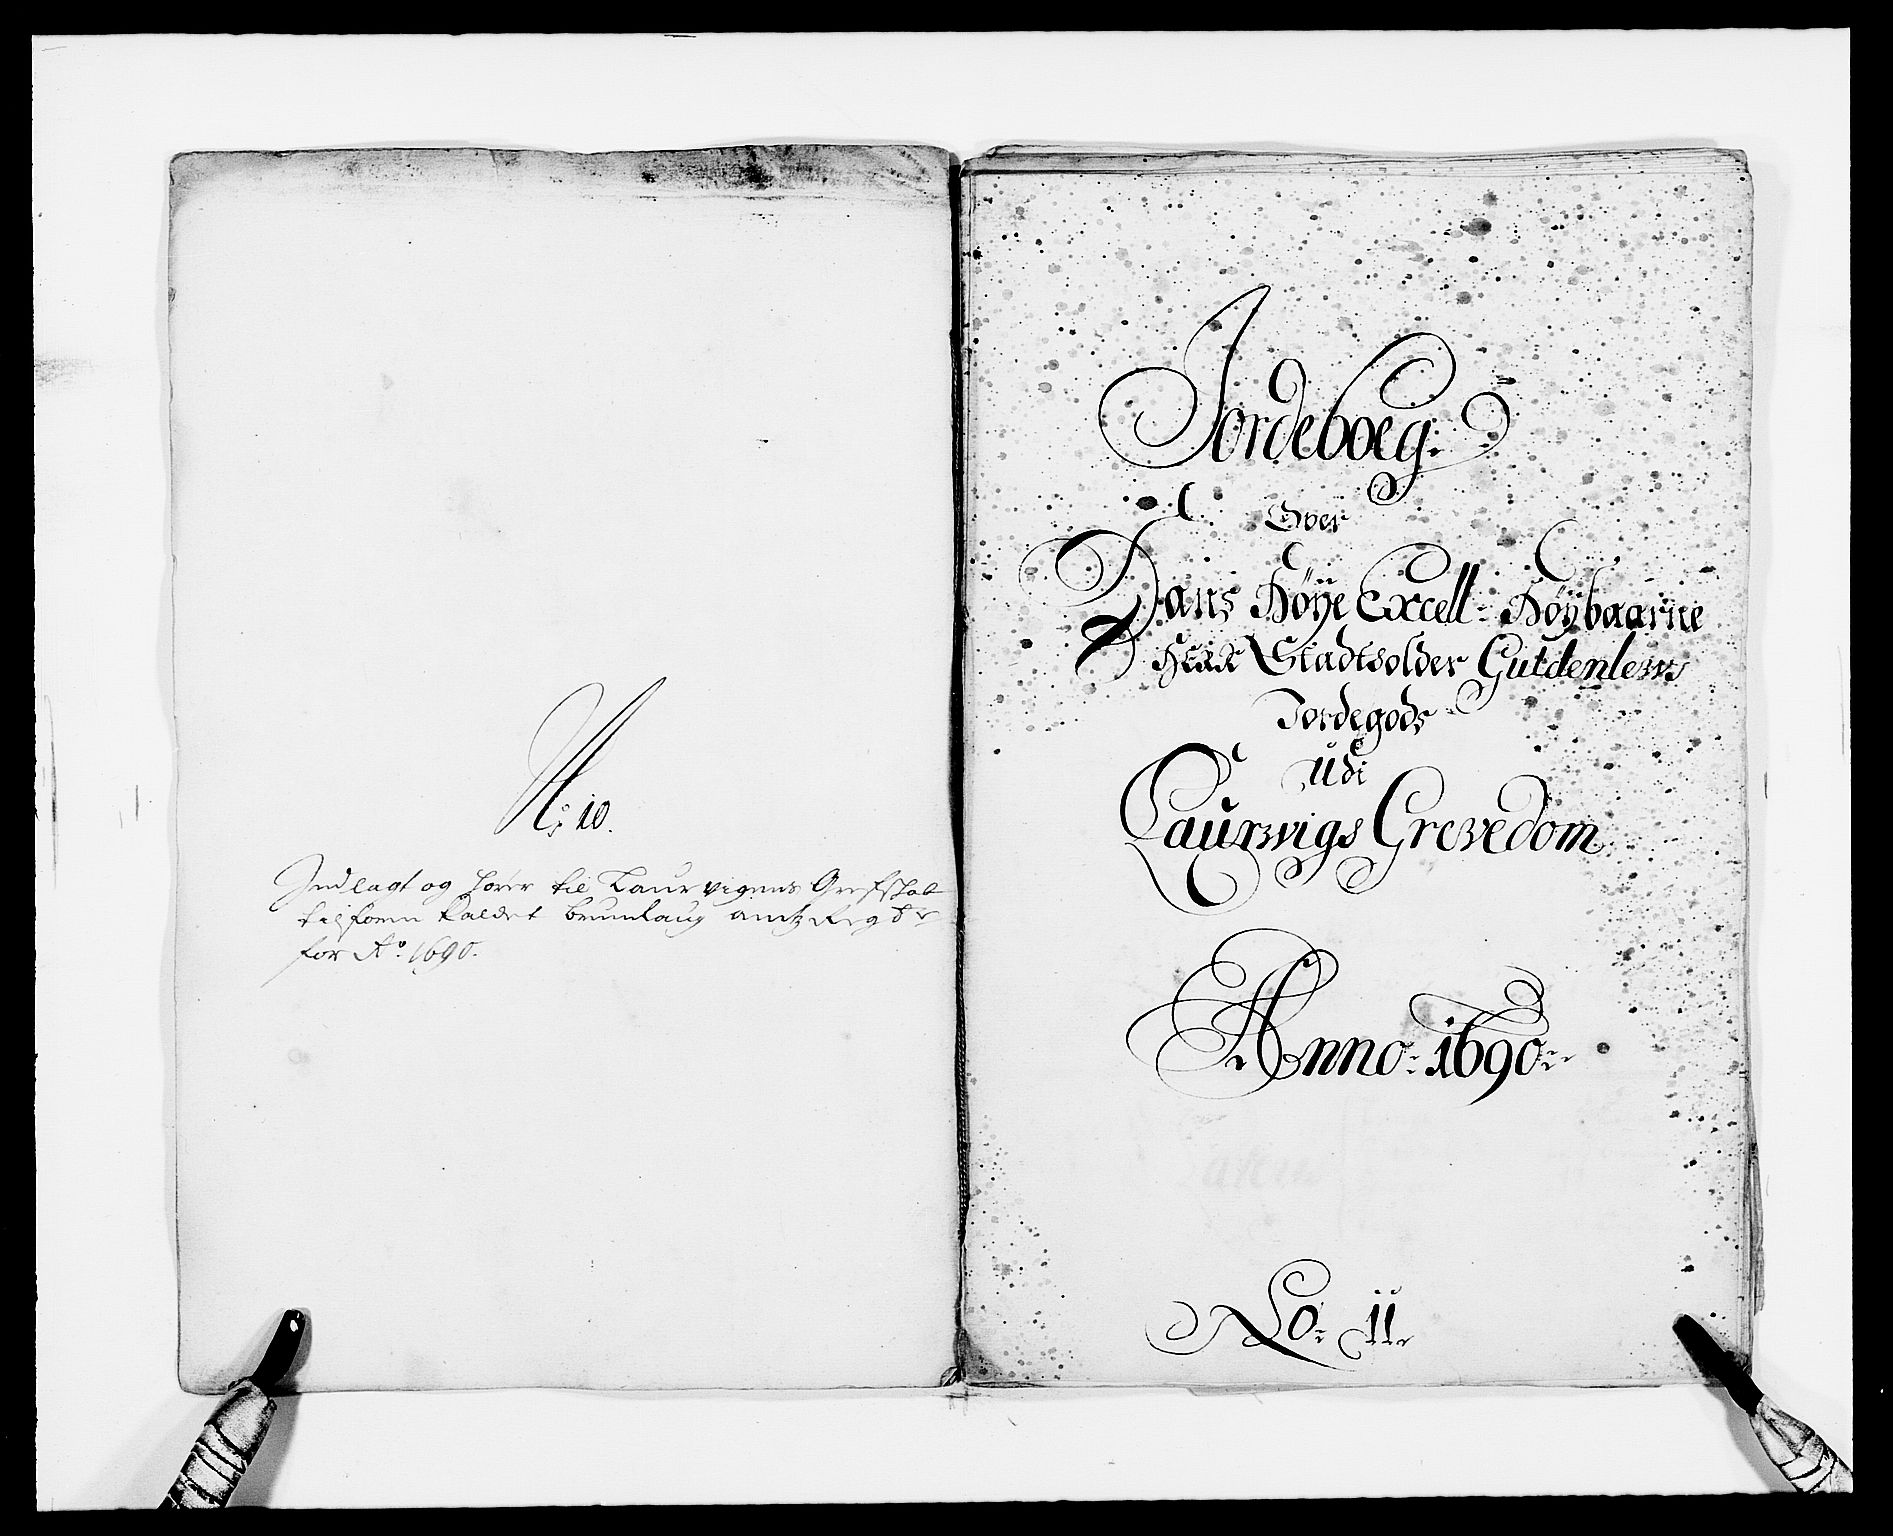 No: 10.
Indlagt og hører til Laurvigens Grefskab
tilforn kaldet Brunlaug amtz Regsk
for Ao. 1690.
Jordeboeg.
Over
Hans Høÿe Excell: Høÿbaarne
Herr Stadtholder Guldenlews
Jordegods
udi
Laurwigs Grevedom
Anno: 1690:
No: 11.